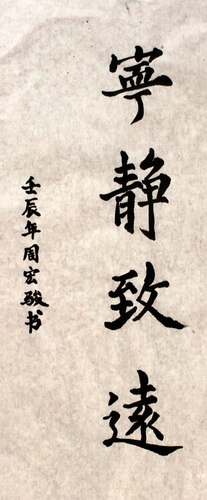 寧静致遠
壬辰年周宏骏书